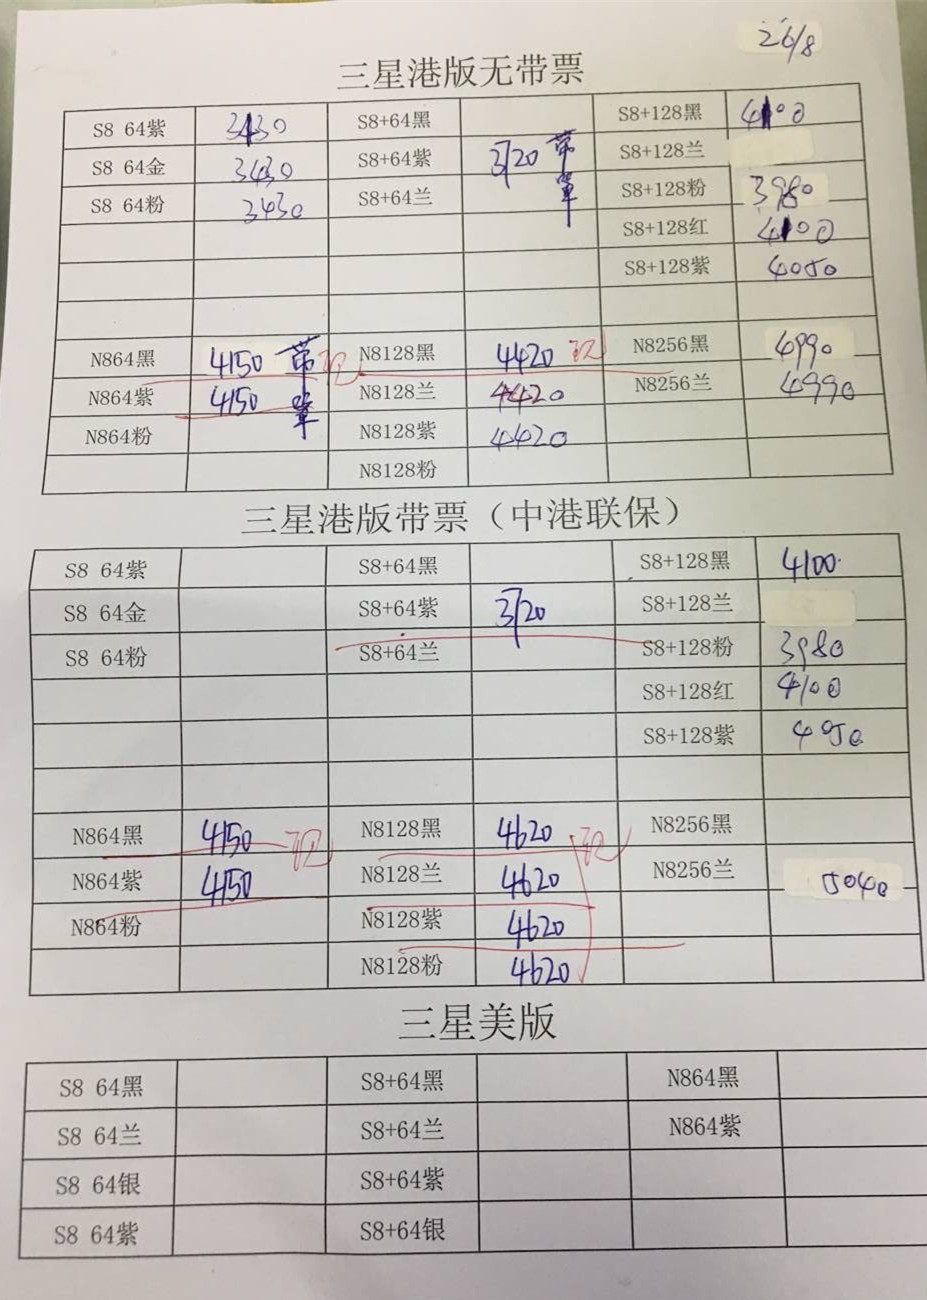 26/8
三星港版无带票
S8 64紫 3430 S8+64黑 S8+128黑 4100
S8 64金 3430 S8+64紫 3720 带单 S8+128兰
S8 64粉 3430 S8+64兰 S8+128粉 3980
S8+128红 4100
S8+128紫 4050
N864黑 4150 带 现 N8128黑 4420 现 N8256黑 4990
N864紫 4150 单 N8128兰 4420 N8256兰 4990
N864粉 N8128紫 4420
N8128粉
三星港版带票（中港联保）
S8 64紫 S8+64黑 S8+128黑 4100
S8 64金 S8+64紫 3720 S8+128兰
S8 64粉 S8+64兰 S8+128粉 3980
S8+128红 4100
S8+128紫
N864黑 4150 现 N8128黑 4620 现 N8256黑
N864紫 4150 N8128兰 4620 N8256兰 5040
N864粉 N8128紫 4620
N8128粉 4620
三星美版
S8 64黑 S8+64黑 N864黑
S8 64兰 S8+64兰 N864紫
S8 64银 S8+64紫
S8 64紫 S8+64银